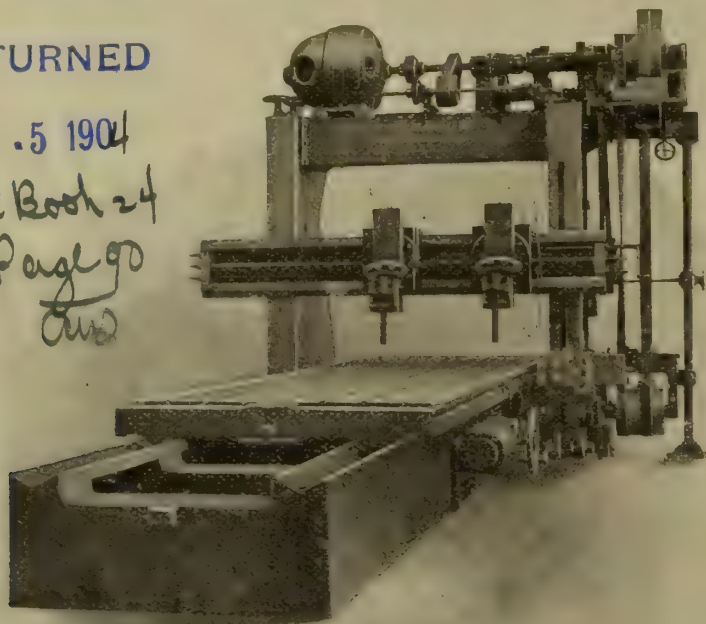 TURNED
.5 1904
Book 24
Page 90